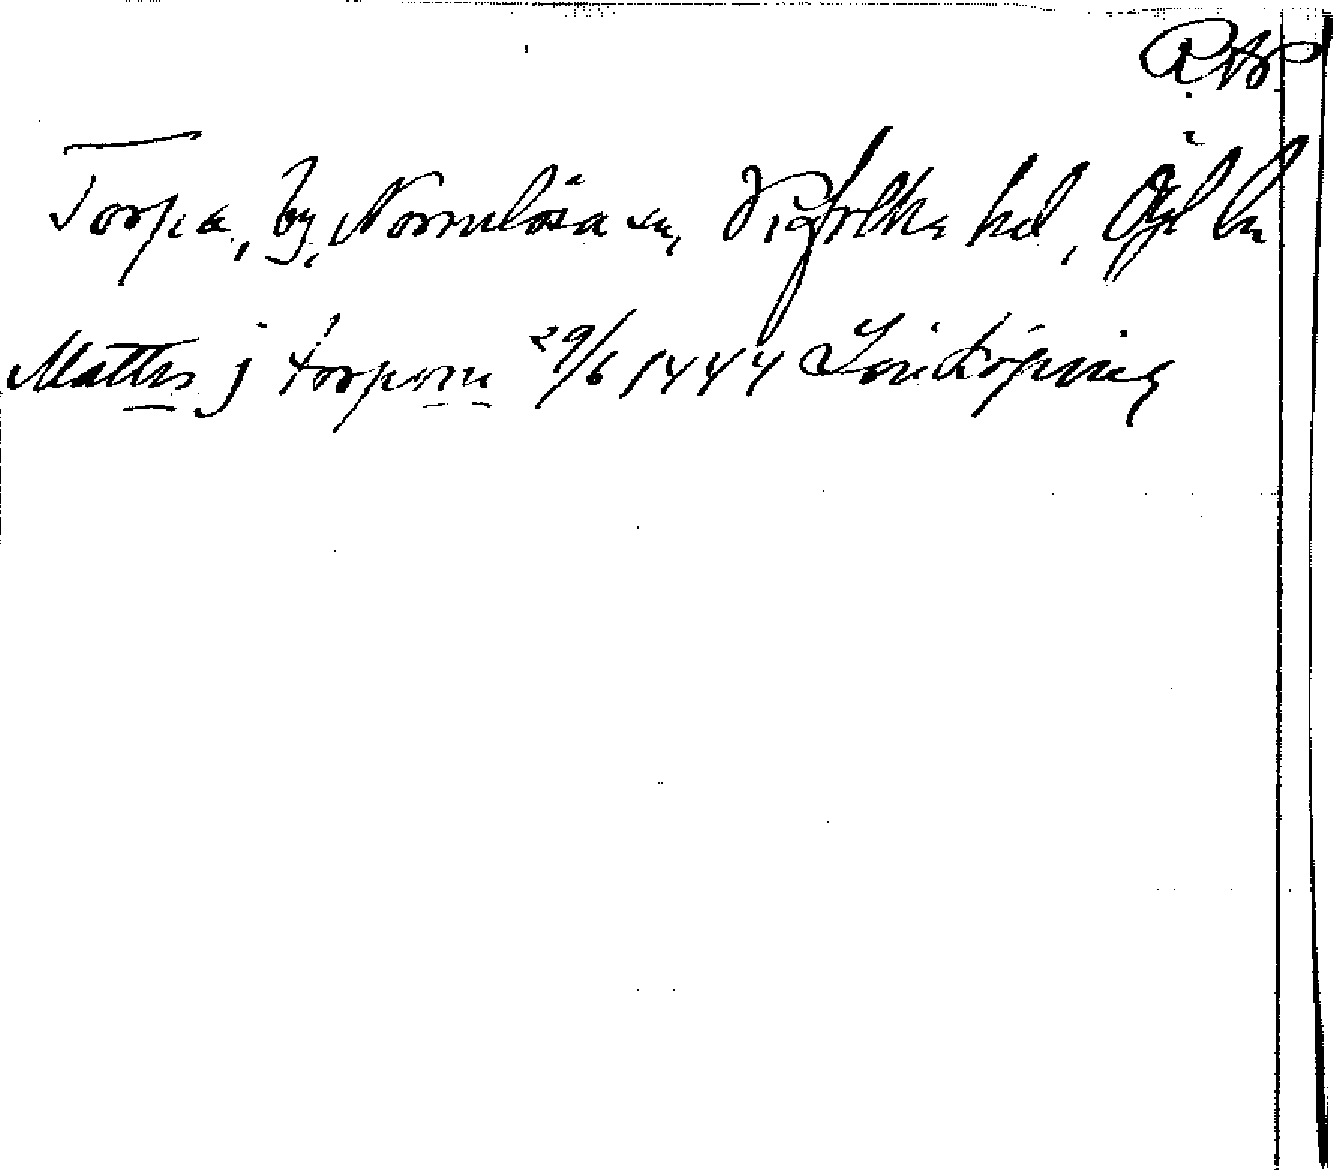 RAP
Torpa, by, Normlösa sn, Vifolka hd, Ögl ln
Mattis j torpom 29/6 1444 Linköping